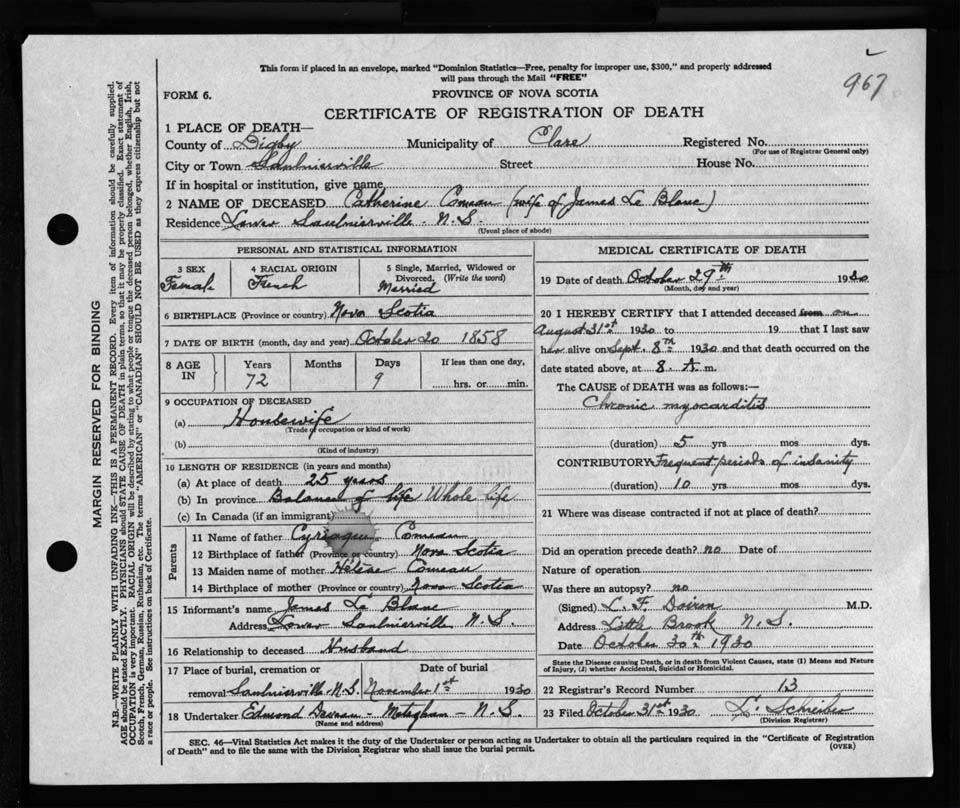 967
This form if placed in an envelope, marked "Dominion Statistics—Free, penalty for improper use, $300," and properly addressed
will pass through the Mail "FREE"
FORM 6.
PROVINCE OF NOVA SCOTIA
CERTIFICATE OF REGISTRATION OF DEATH
1 PLACE OF DEATH—
County of Digby Municipality of Clare Registered No.
(For use of Registrar General only)
City or Town Saulnierville Street House No.
If in hospital or institution, give name
2 NAME OF DECEASED Catherine Comeau (wife of James Le Blanc)
Residence Lower Saulnierville N.S.
(Usual place of abode)
PERSONAL AND STATISTICAL INFORMATION
3 SEX
Female
4 RACIAL ORIGIN
French
5 Single, Married, Widowed or
Divorced. (Write the word)
Married
6 BIRTHPLACE (Province or country) Nova Scotia
7 DATE OF BIRTH (month, day and year) October 20 1858
8 AGE
IN
Years
72
Months
Days
9
If less than one day,
hrs. or min.
9 OCCUPATION OF DECEASED
(a) Housewife
(Trade or occupation or kind of work)
(b)
(Kind of industry)
10 LENGTH OF RESIDENCE (in years and months)
(a) At place of death 25 years
(b) In province Balance of life Whole life
(c) In Canada (if an immigrant)
Parents
11 Name of father Cyriaque Comeau
12 Birthplace of father (Province or country) Nova Scotia
13 Maiden name of mother Hélène Comeau
14 Birthplace of mother (Province or country) Nova Scotia
15 Informant's name James Le Blanc
Address Lower Saulnierville N.S.
16 Relationship to deceased Husband
17 Place of burial, cremation or Date of burial
removal Saulnierville N.S. November 1st 1930
18 Undertaker Edmond Deveau - Meteghan - N.S.
(Name and address)
MEDICAL CERTIFICATE OF DEATH
19 Date of death October 29th 1930
(Month, day and year)
20 I HEREBY CERTIFY that I attended deceased from on
August 31st 1930 to 19 that I last saw
her alive on Sept. 8th 1930 and that death occurred on the
date stated above, at 8. A. m.
The CAUSE of DEATH was as follows:—
Chronic myocarditis
(duration) 5 yrs mos dys.
CONTRIBUTORY Frequent periods of insanity
(duration) 10 yrs mos dys.
21 Where was disease contracted if not at place of death?
Did an operation precede death? no Date of
Nature of operation
Was there an autopsy? no
(Signed) L. F. Doiron M.D.
Address Little Brook N.S.
Date October 30th 1930
State the Disease causing Death, or in death from Violent Causes, state (1) Means and Nature
of Injury, (2) whether Accidental, Suicidal or Homicidal.
22 Registrar's Record Number 13
23 Filed October 31st 1930 Schreiber
(Division Registrar)
SEC. 46—Vital Statistics Act makes it the duty of the Undertaker or person acting as Undertaker to obtain all the particulars required in the "Certificate of Registration
of Death" and to file the same with the Division Registrar who shall issue the burial permit.
(OVER)
MARGIN RESERVED FOR BINDING
N.B.—WRITE PLAINLY WITH UNFADING INK—THIS IS A PERMANENT RECORD. Every item of information should be carefully supplied.
AGE should be stated EXACTLY. PHYSICIANS should STATE CAUSE OF DEATH in plain terms, so that it may be properly classified. Exact statement of
OCCUPATION is very important. RACIAL ORIGIN will be described by stating to what people or tongue the deceased person belonged, whether English, Irish,
Scotch, French, German, Russian, Ruthenian, etc. The terms "AMERICAN" or "CANADIAN" SHOULD NOT BE USED as they express citizenship but not
a race or people. See instructions on back of Certificate.